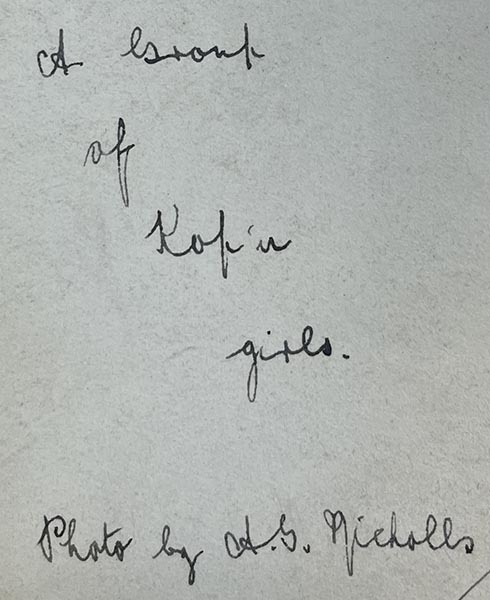 A Group
of
Kop'u
girls.
Photo by A.G. Nicholls